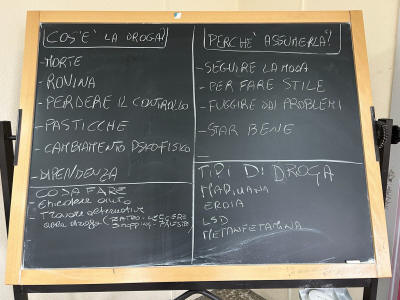 COS'E' LA DROGA?
-MORTE
-ROVINA
-PERDERE IL CONTROLLO
-PASTICCHE
-CAMBIAMENTO PSICOFISICO
-DIPENDENZA
COSA FARE
Chiedere aiuto
Trovare alternative
alla droga (
SHOPPING-
PERCHE' ASSUMERLA?
-SEGUIRE LA MODA
-PER FARE STILE
-FUGGIRE DAI PROBLEMI
-STAR BENE
-
TIPI DI DROGA
MARIJUANA
EROIA
LSD
METANFETAMINA